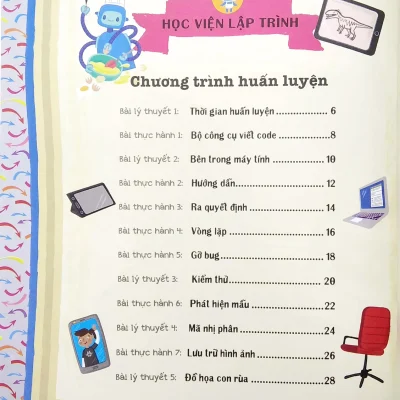 HỌC VIỆN LẬP TRÌNH
Chương trình huấn luyện
Bài lý thuyết 1: Thời gian huấn luyện ................ 6
Bài thực hành 1: Bộ công cụ viết code ................ 8
Bài lý thuyết 2: Bên trong máy tính ................ 10
Bài thực hành 2: Hướng dẫn ................ 12
Bài thực hành 3: Ra quyết định ................ 14
Bài thực hành 4: Vòng lặp ................ 16
Bài thực hành 5: Gỡ bug ................ 18
Bài lý thuyết 3: Kiểm thử ................ 20
Bài thực hành 6: Phát hiện mẫu ................ 22
Bài lý thuyết 4: Mã nhị phân ................ 24
Bài thực hành 7: Lưu trữ hình ảnh ................ 26
Bài lý thuyết 5: Đồ họa con rùa ................ 28